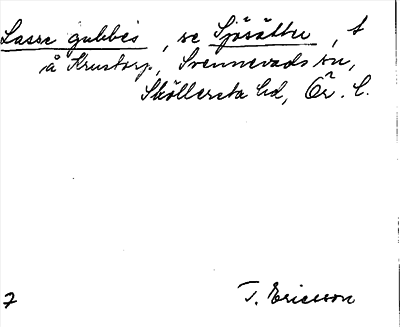 Lasse gubbes, se Sjösätter, t
å Krustorp, Svennevads sn,
Sköllersta hd, Ör. l.
7 T. Ericsson